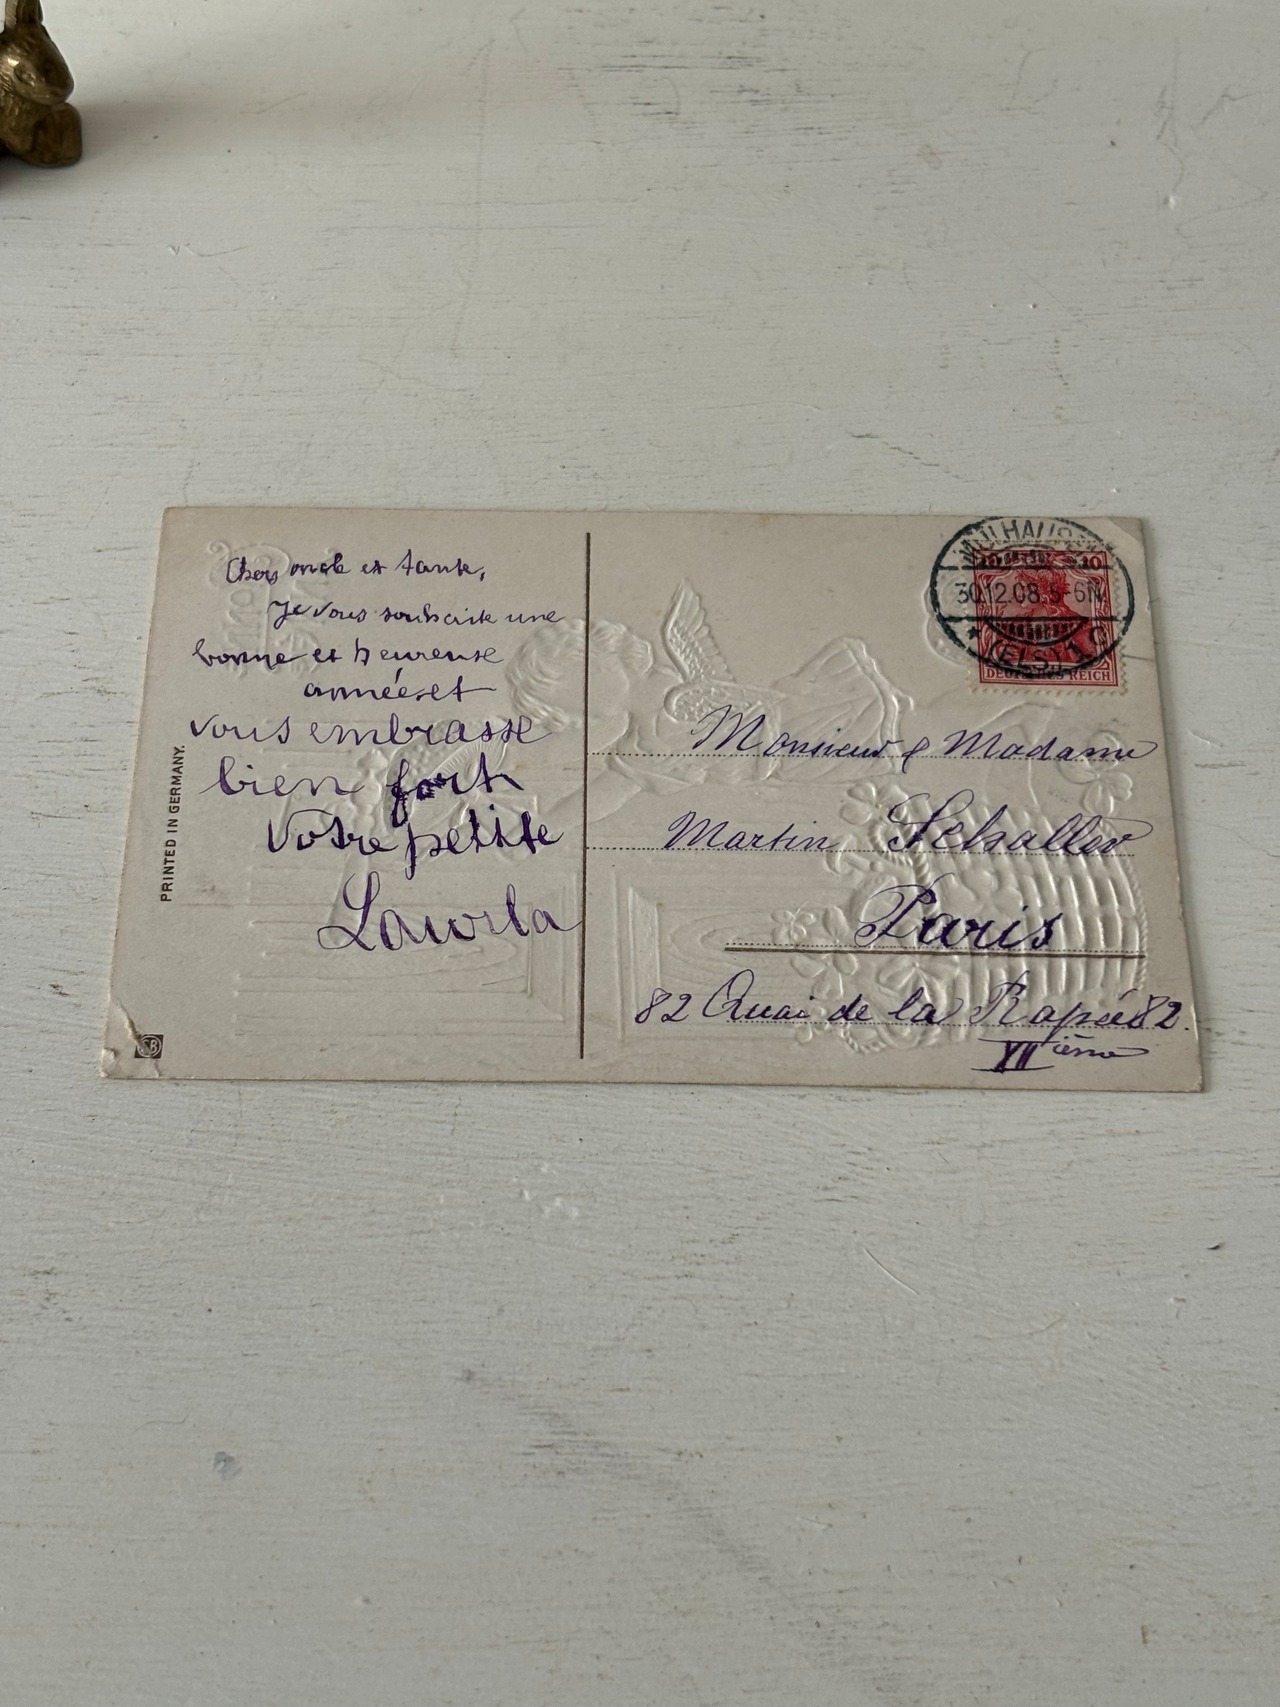 Chers oncle et tante,
Je vous souhaite une
bonne et heureuse
année et
vous embrasse
bien fort
Votre petite
PRINTED IN GERMANY.
MÜLHAUSEN
30.12.08.5-6N
* (ELS.) 1 C
10 10
DEUTSCHES REICH
Monsieur & Madame
Martin Schaller
Paris
82 Quai de la Rapée 82.
XII ième